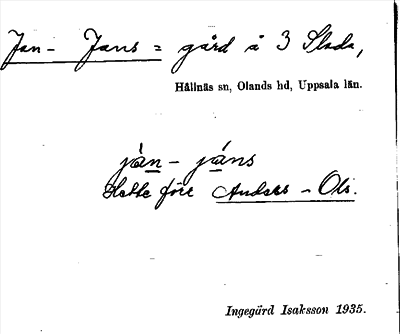 Jan- Jans = gård å 3 Slada,
Hållnäs sn, Olands hd, Uppsala län.
jàn - jáns
Hette före Anders - Ols.
Ingegärd Isaksson 1935.